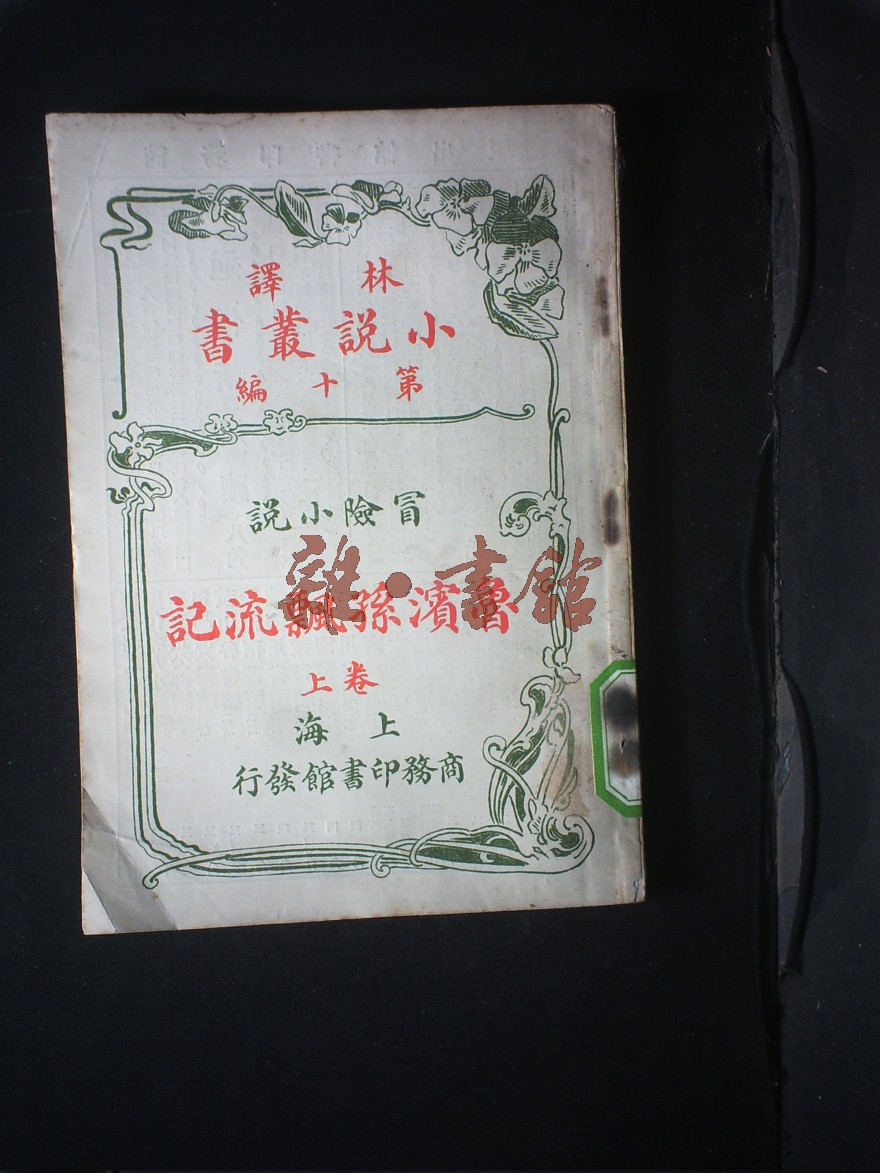 林譯
小説叢書
第十編
冒險小説
魯濱孫飄流記
卷上
上海
商務印書館發行
雜·書館